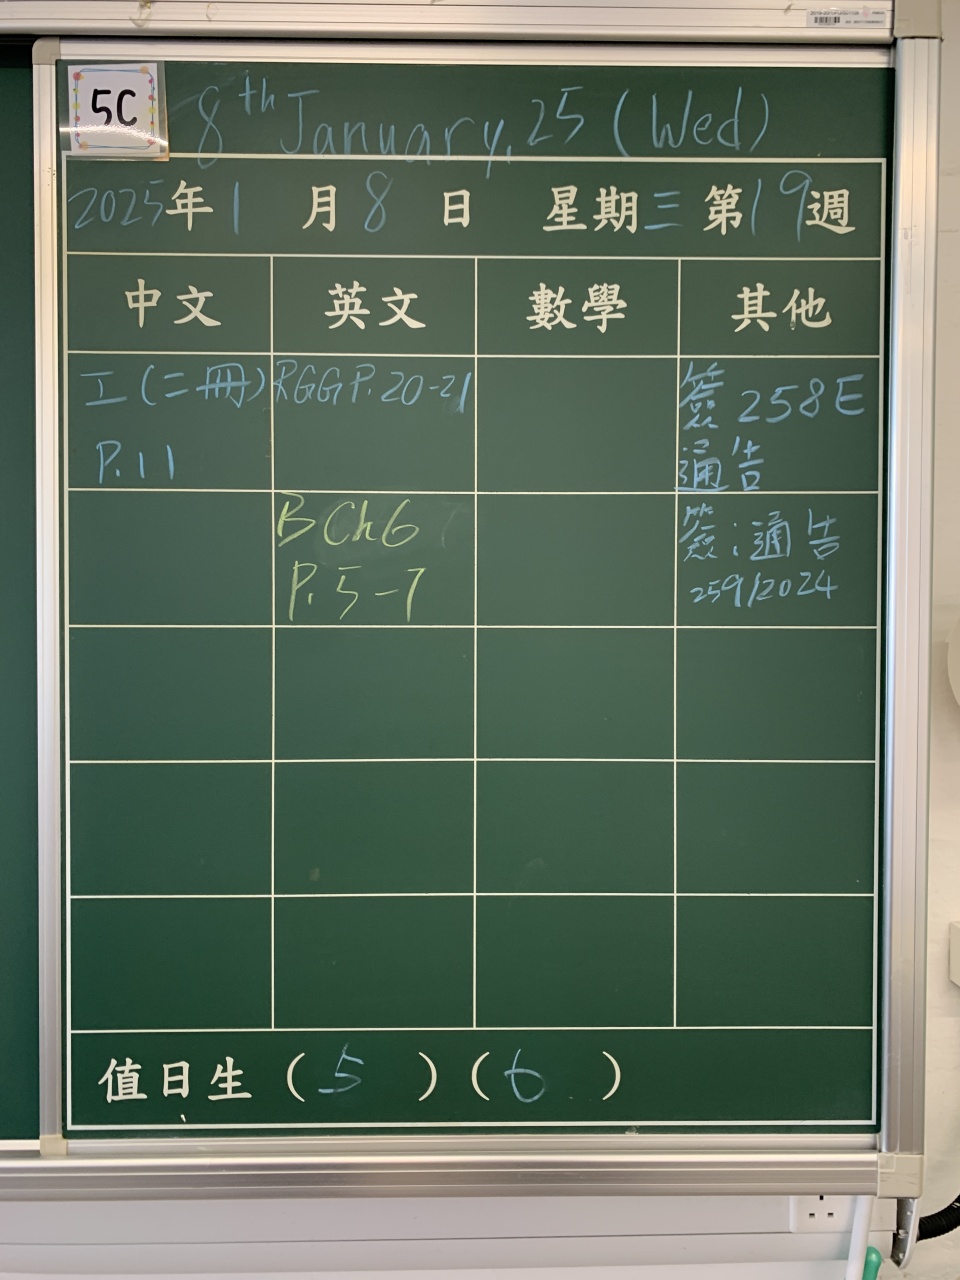 5C
8th January, 25 (Wed)
2025年1月8日 星期三 第19週
中文 英文 數學 其他
工(二冊)
P.11
RGG P.20-21
簽 258E
通告
B Ch6
P.5-7
簽:通告
259/2024
值日生 (5)(6)